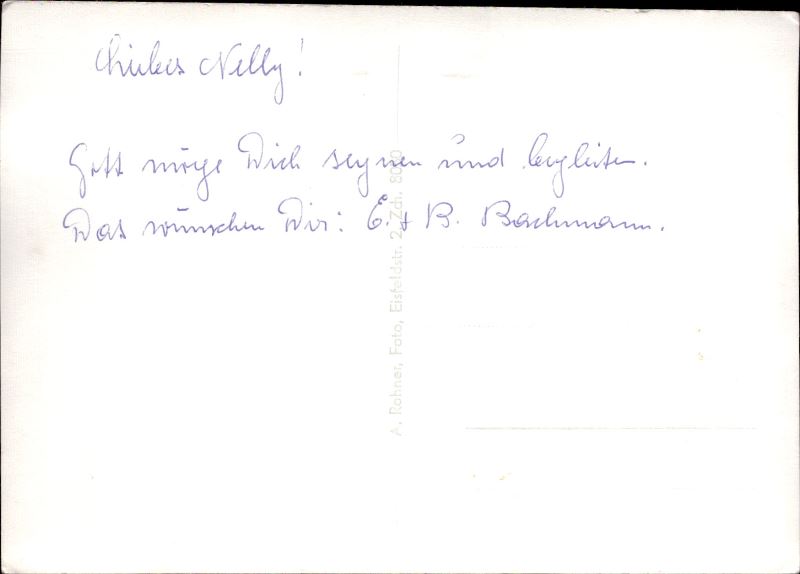 Liebes Nelly!
Gott möge Dich segnen und begleiten.
Das wünschen Dir: E. + B. Bachmann.
A. Rohner, Foto, Eisfeldstr. 2, Zch. 8050